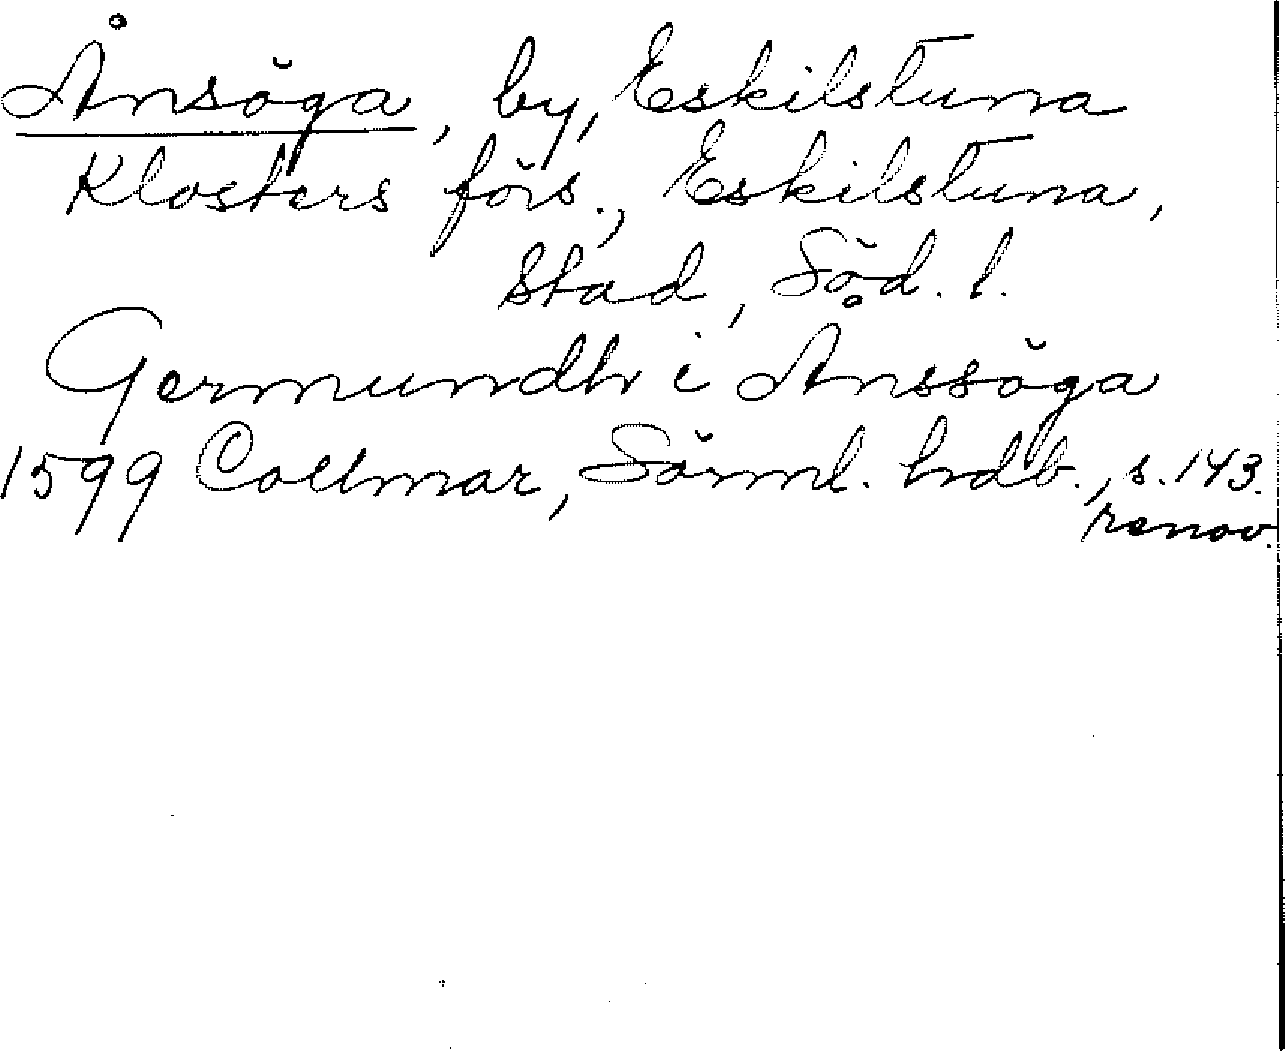 Ånsöga, by, Eskilstuna
Klosters förs., Eskilstuna,
stad, Söd. l.
Germundh i Ånssöga
1599 Collmar, Sörml. hdb., s. 143.
renov.